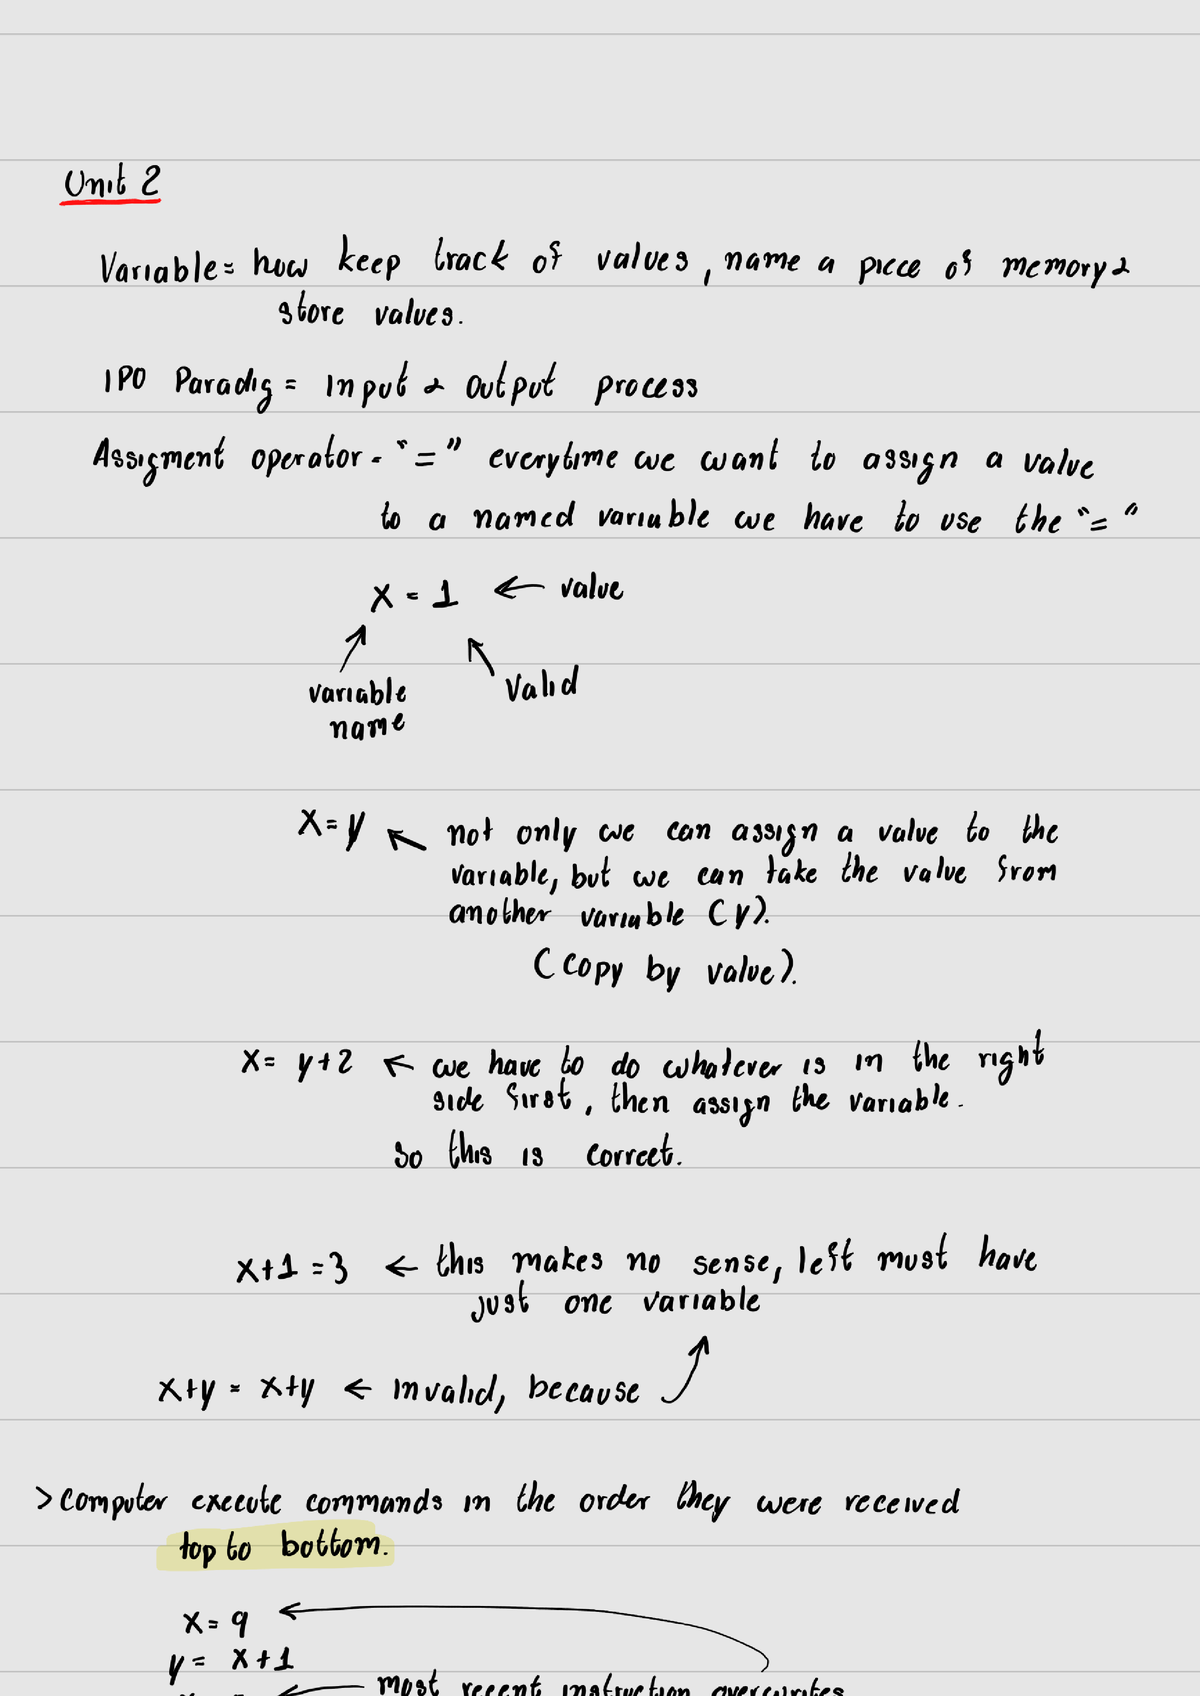 Unit 2
Variable = how keep track of values, name a piece of memory &
store values.
IPO Paradig = Input & Output process
Assigment operator - "=" everytime we want to assign a value
to a named variable we have to use the "="
x = 1 ← value
variable
name
Valid
x = y ← not only we can assign a value to the
variable, but we can take the value from
another variable (y).
(copy by value).
x = y + 2 ← we have to do whatever is in the right
side first, then assign the variable.
so this is correct.
x + 1 = 3 ← this makes no sense, left must have
just one variable
x + y = x + y ← invalid, because
> Computer execute commands in the order they were received
top to bottom.
x = 9
y = x + 1
most recent instruction overwrites